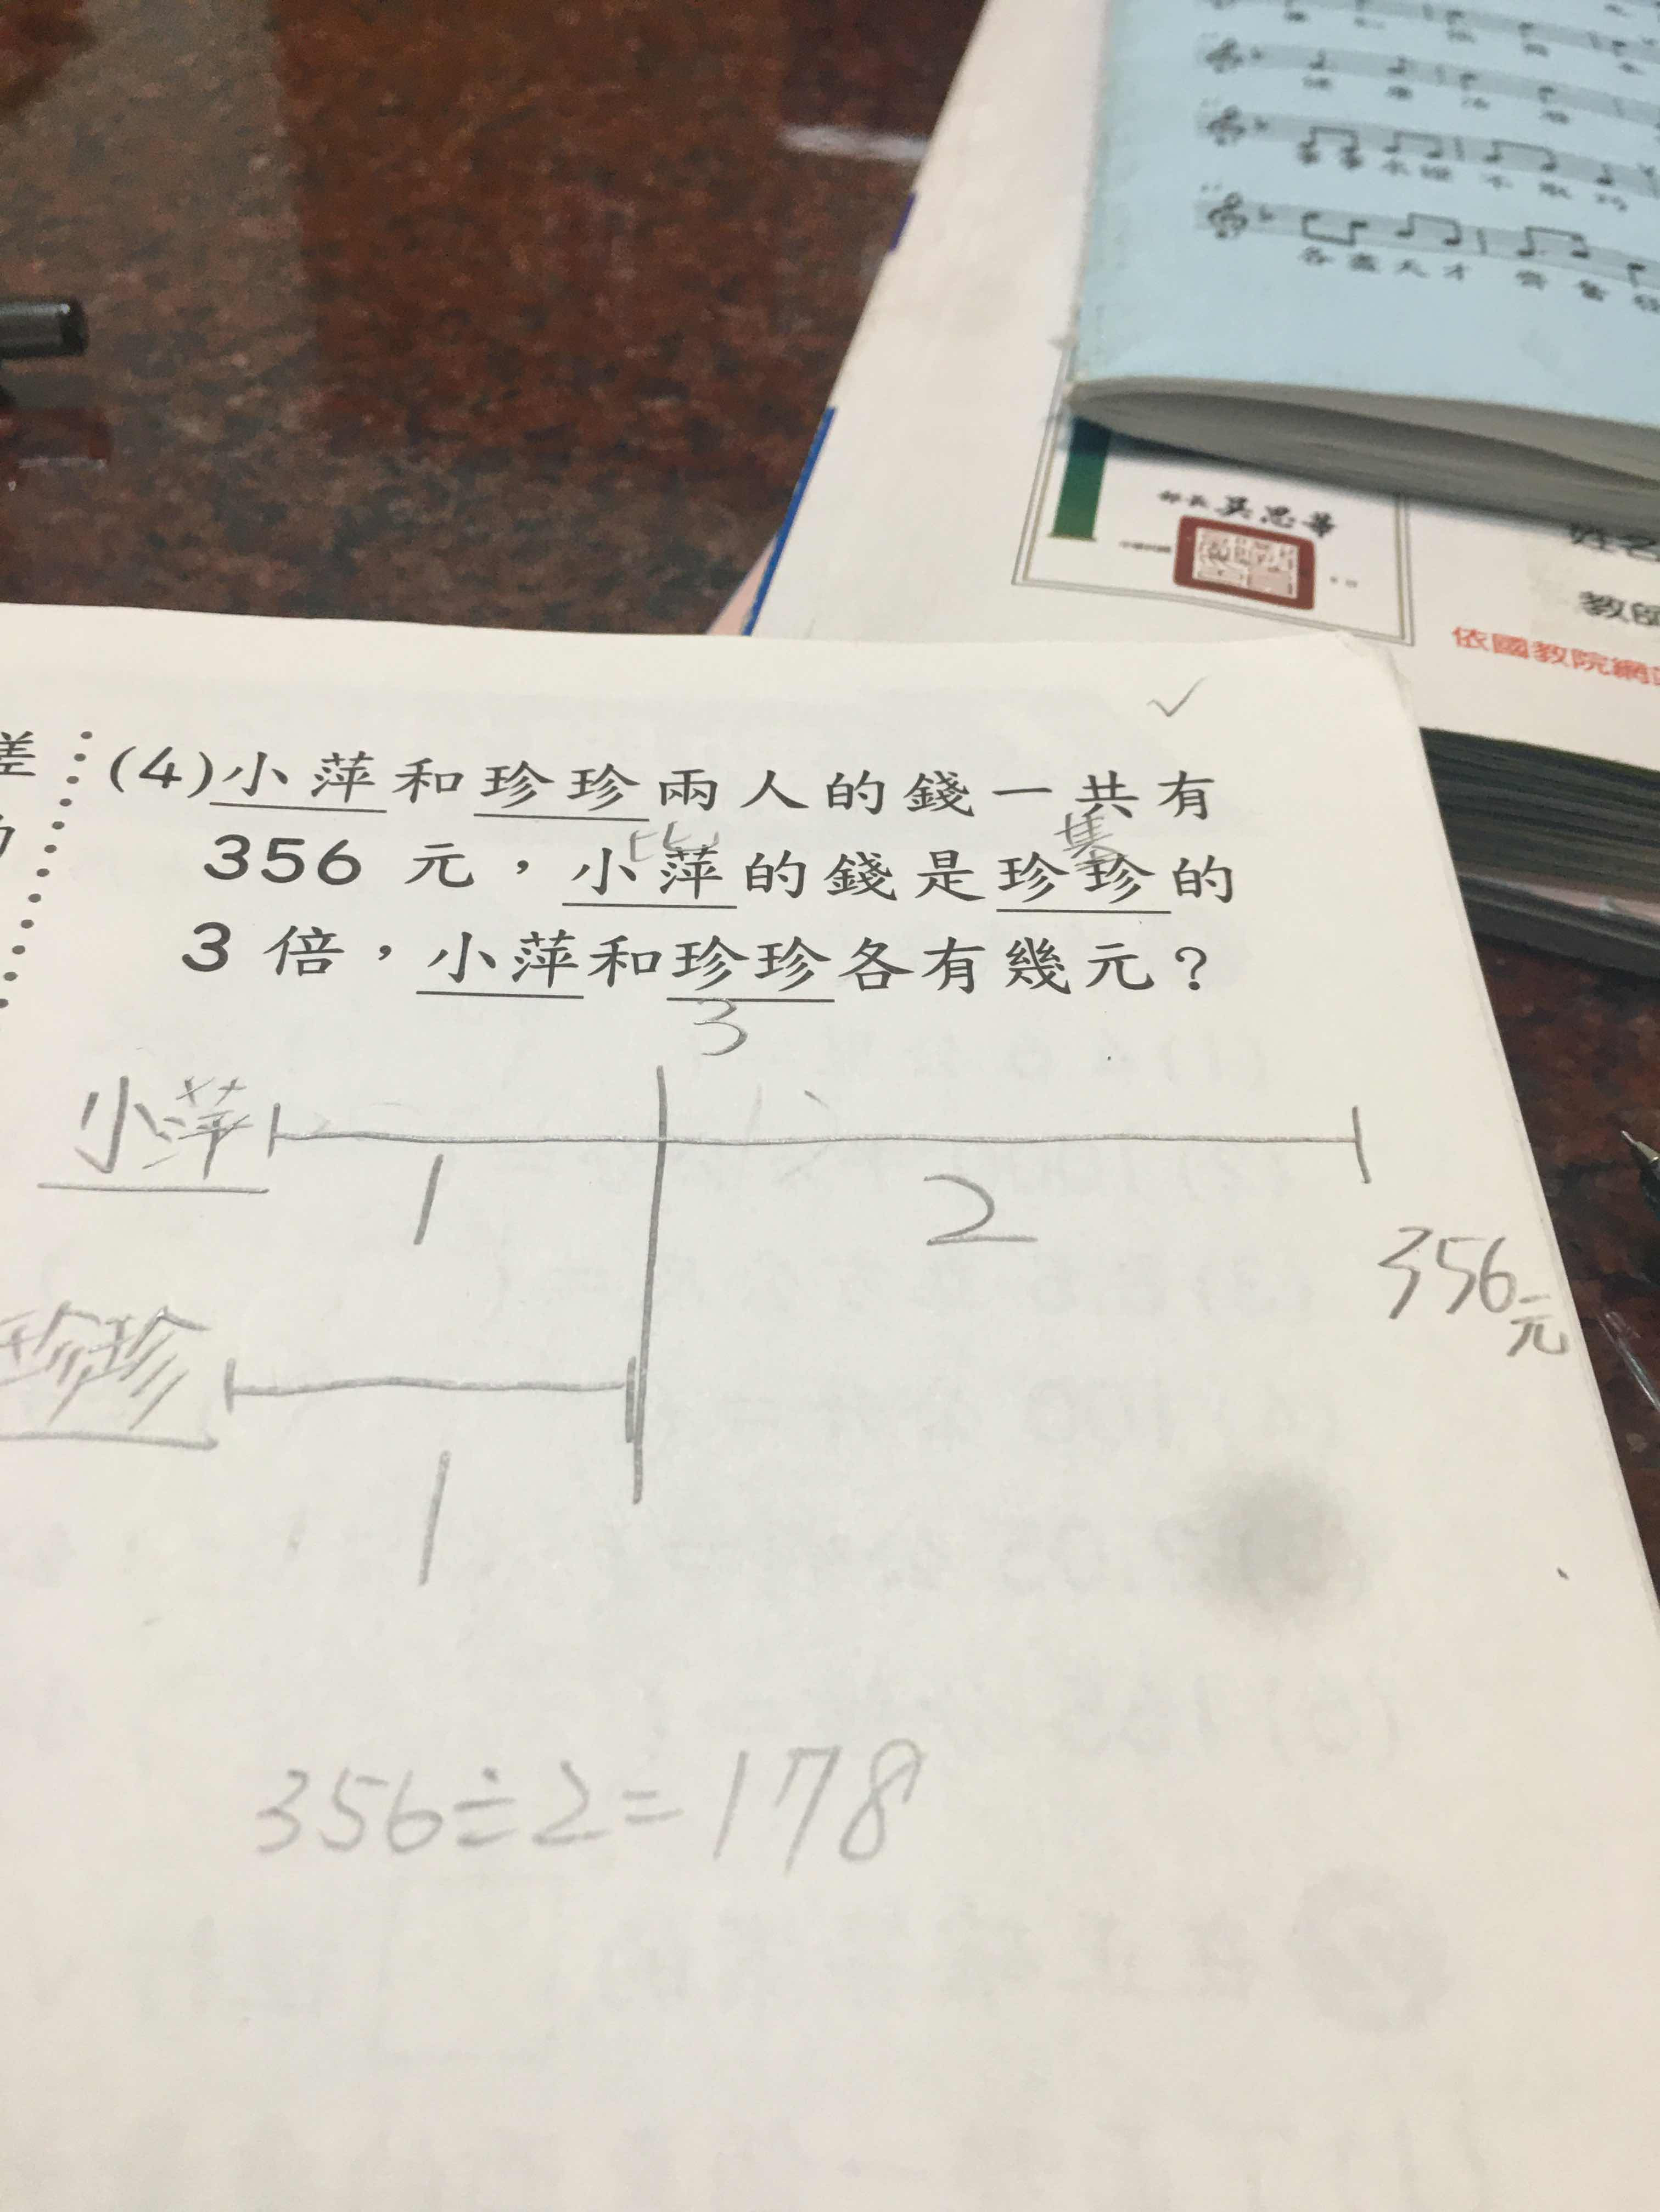 各盡天才
部長吳思華
姓名
教師
依國教院網
差
(4)小萍和珍珍兩人的錢一共有
比 基
356 元，小萍的錢是珍珍的
3 倍，小萍和珍珍各有幾元？
3
小萍
1 2
356元
珍珍
1
356÷2=178